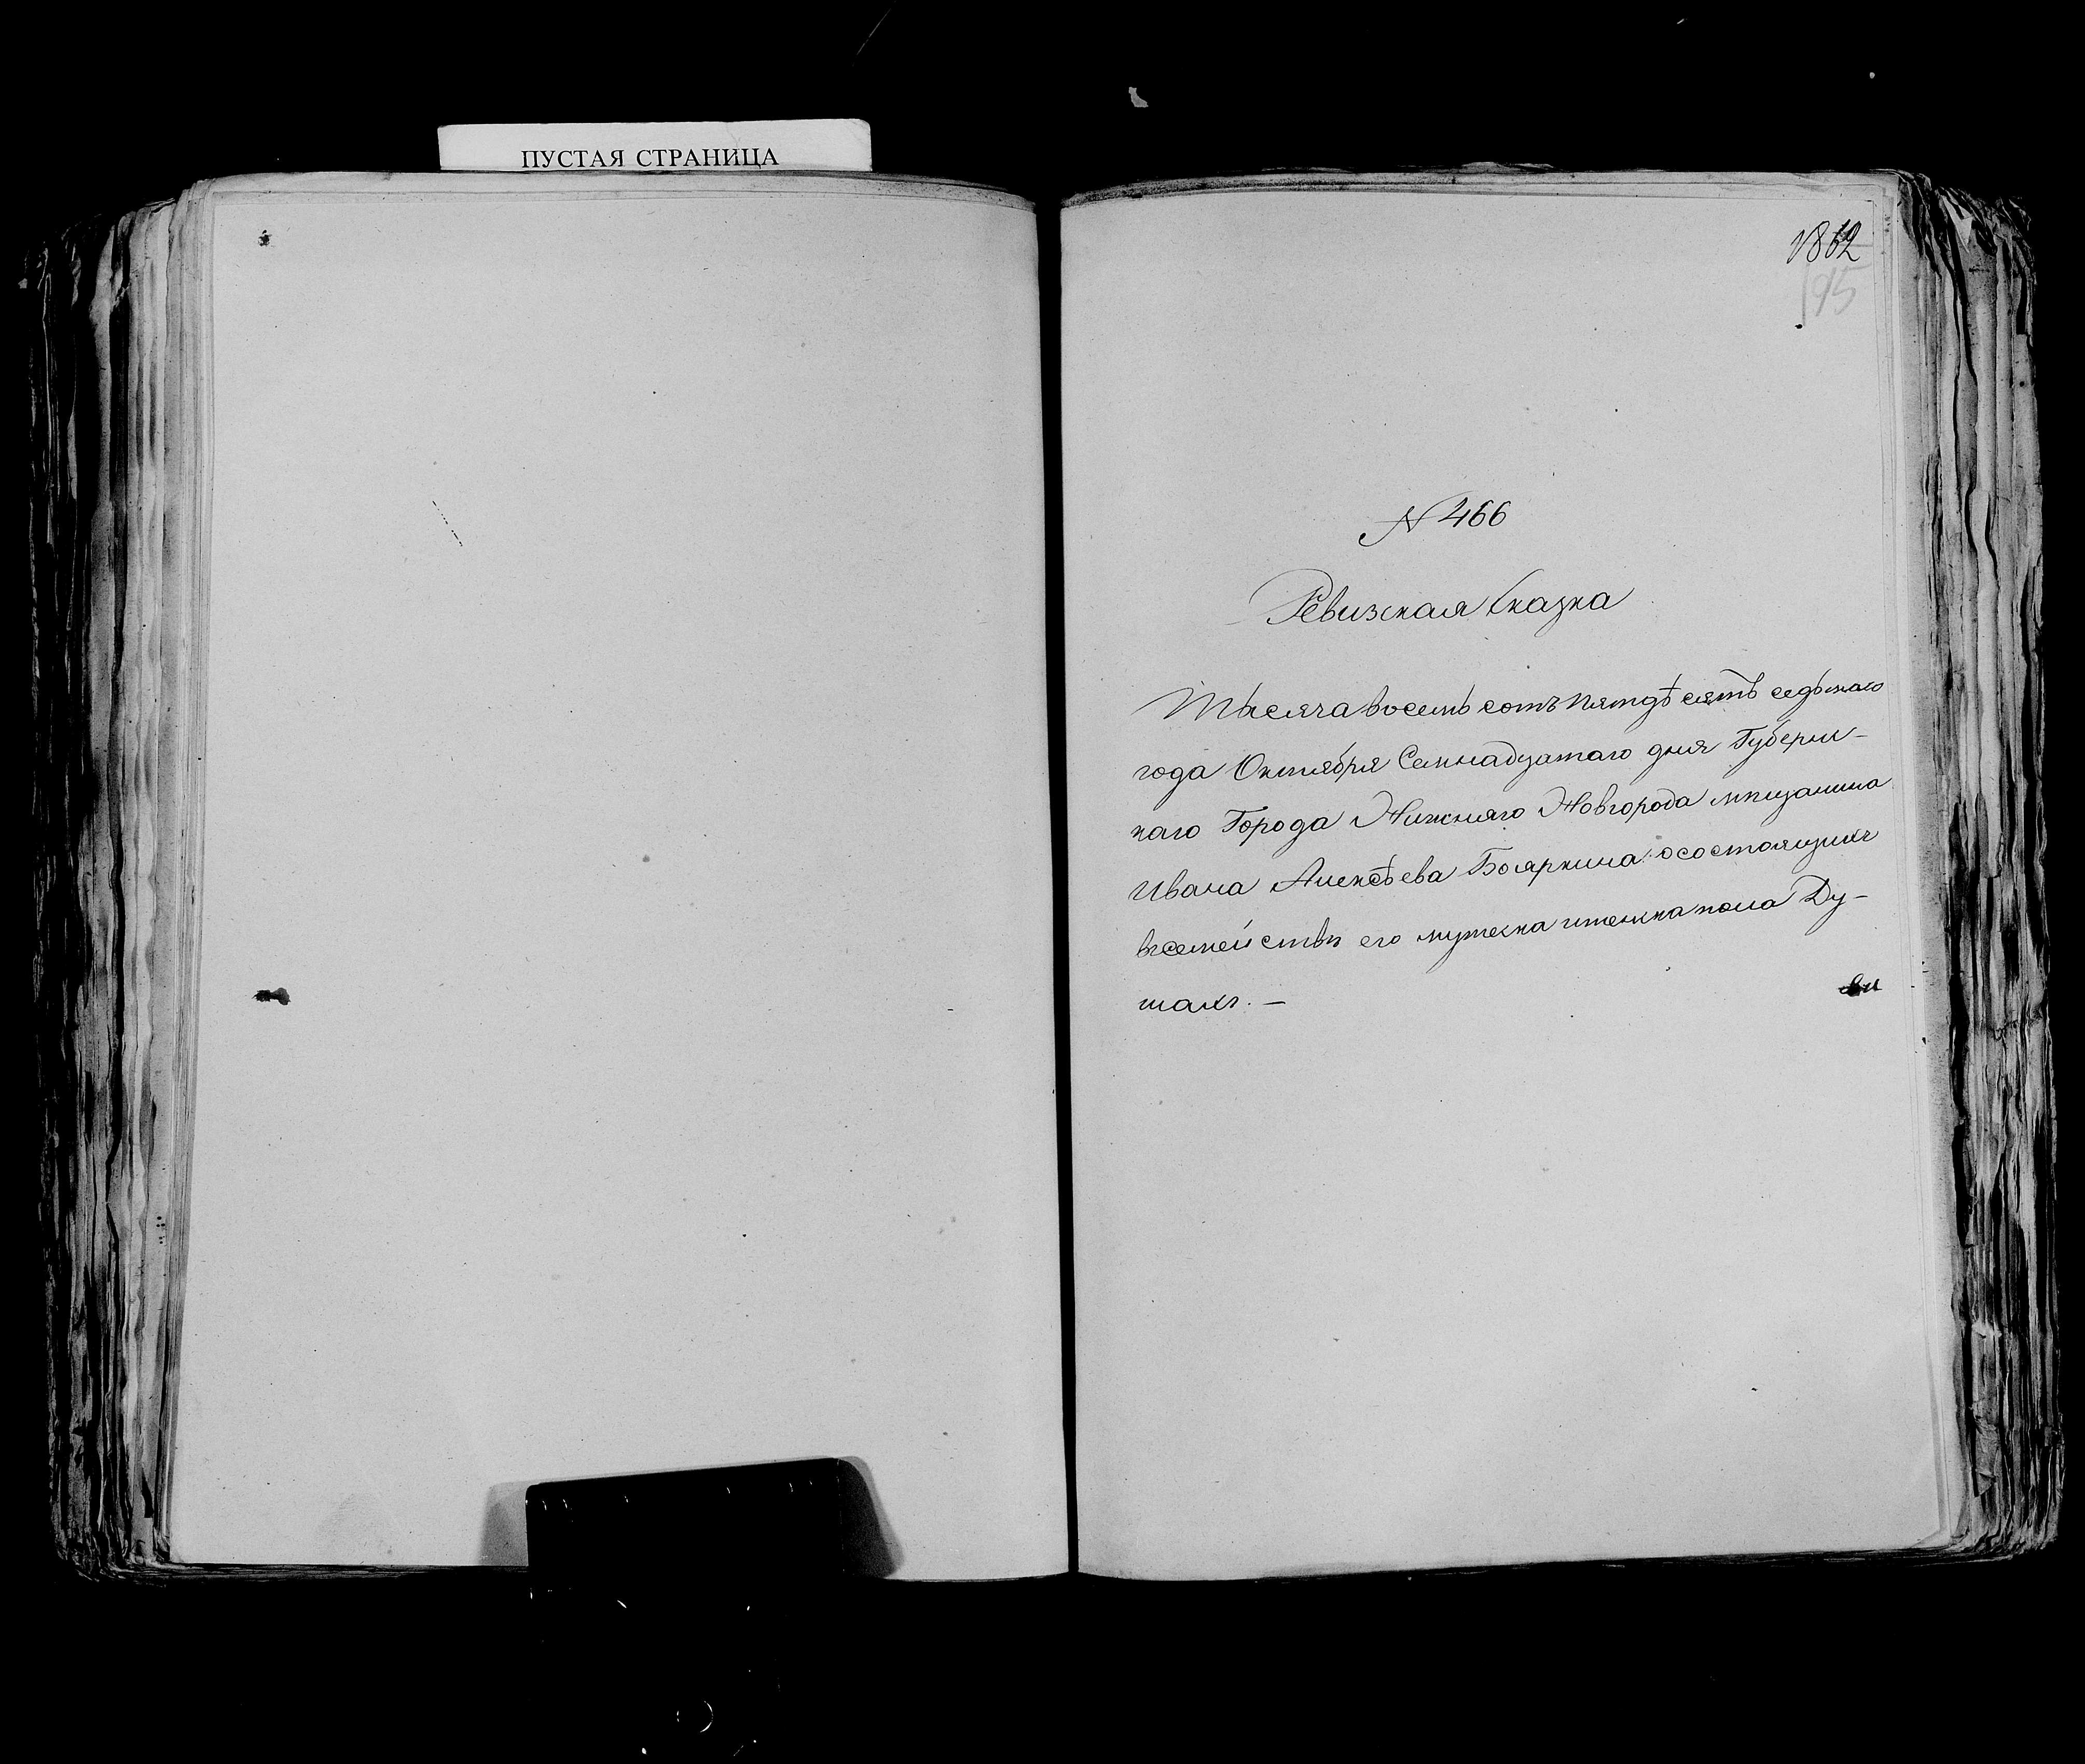 ПУСТАЯ СТРАНИЦА
195
N 466
Ревизская Сказка
Тысяча восемь сотъ пятдѣсятъ седьмаго
года Октября Семнадцатаго дня Губерн-
каго Города Нижняго Новгорода мѣщанина
Ивана Алексѣева Бояркина о состоящихъ
въ семействѣ его мужеска и женска пола Ду-
шахъ. —